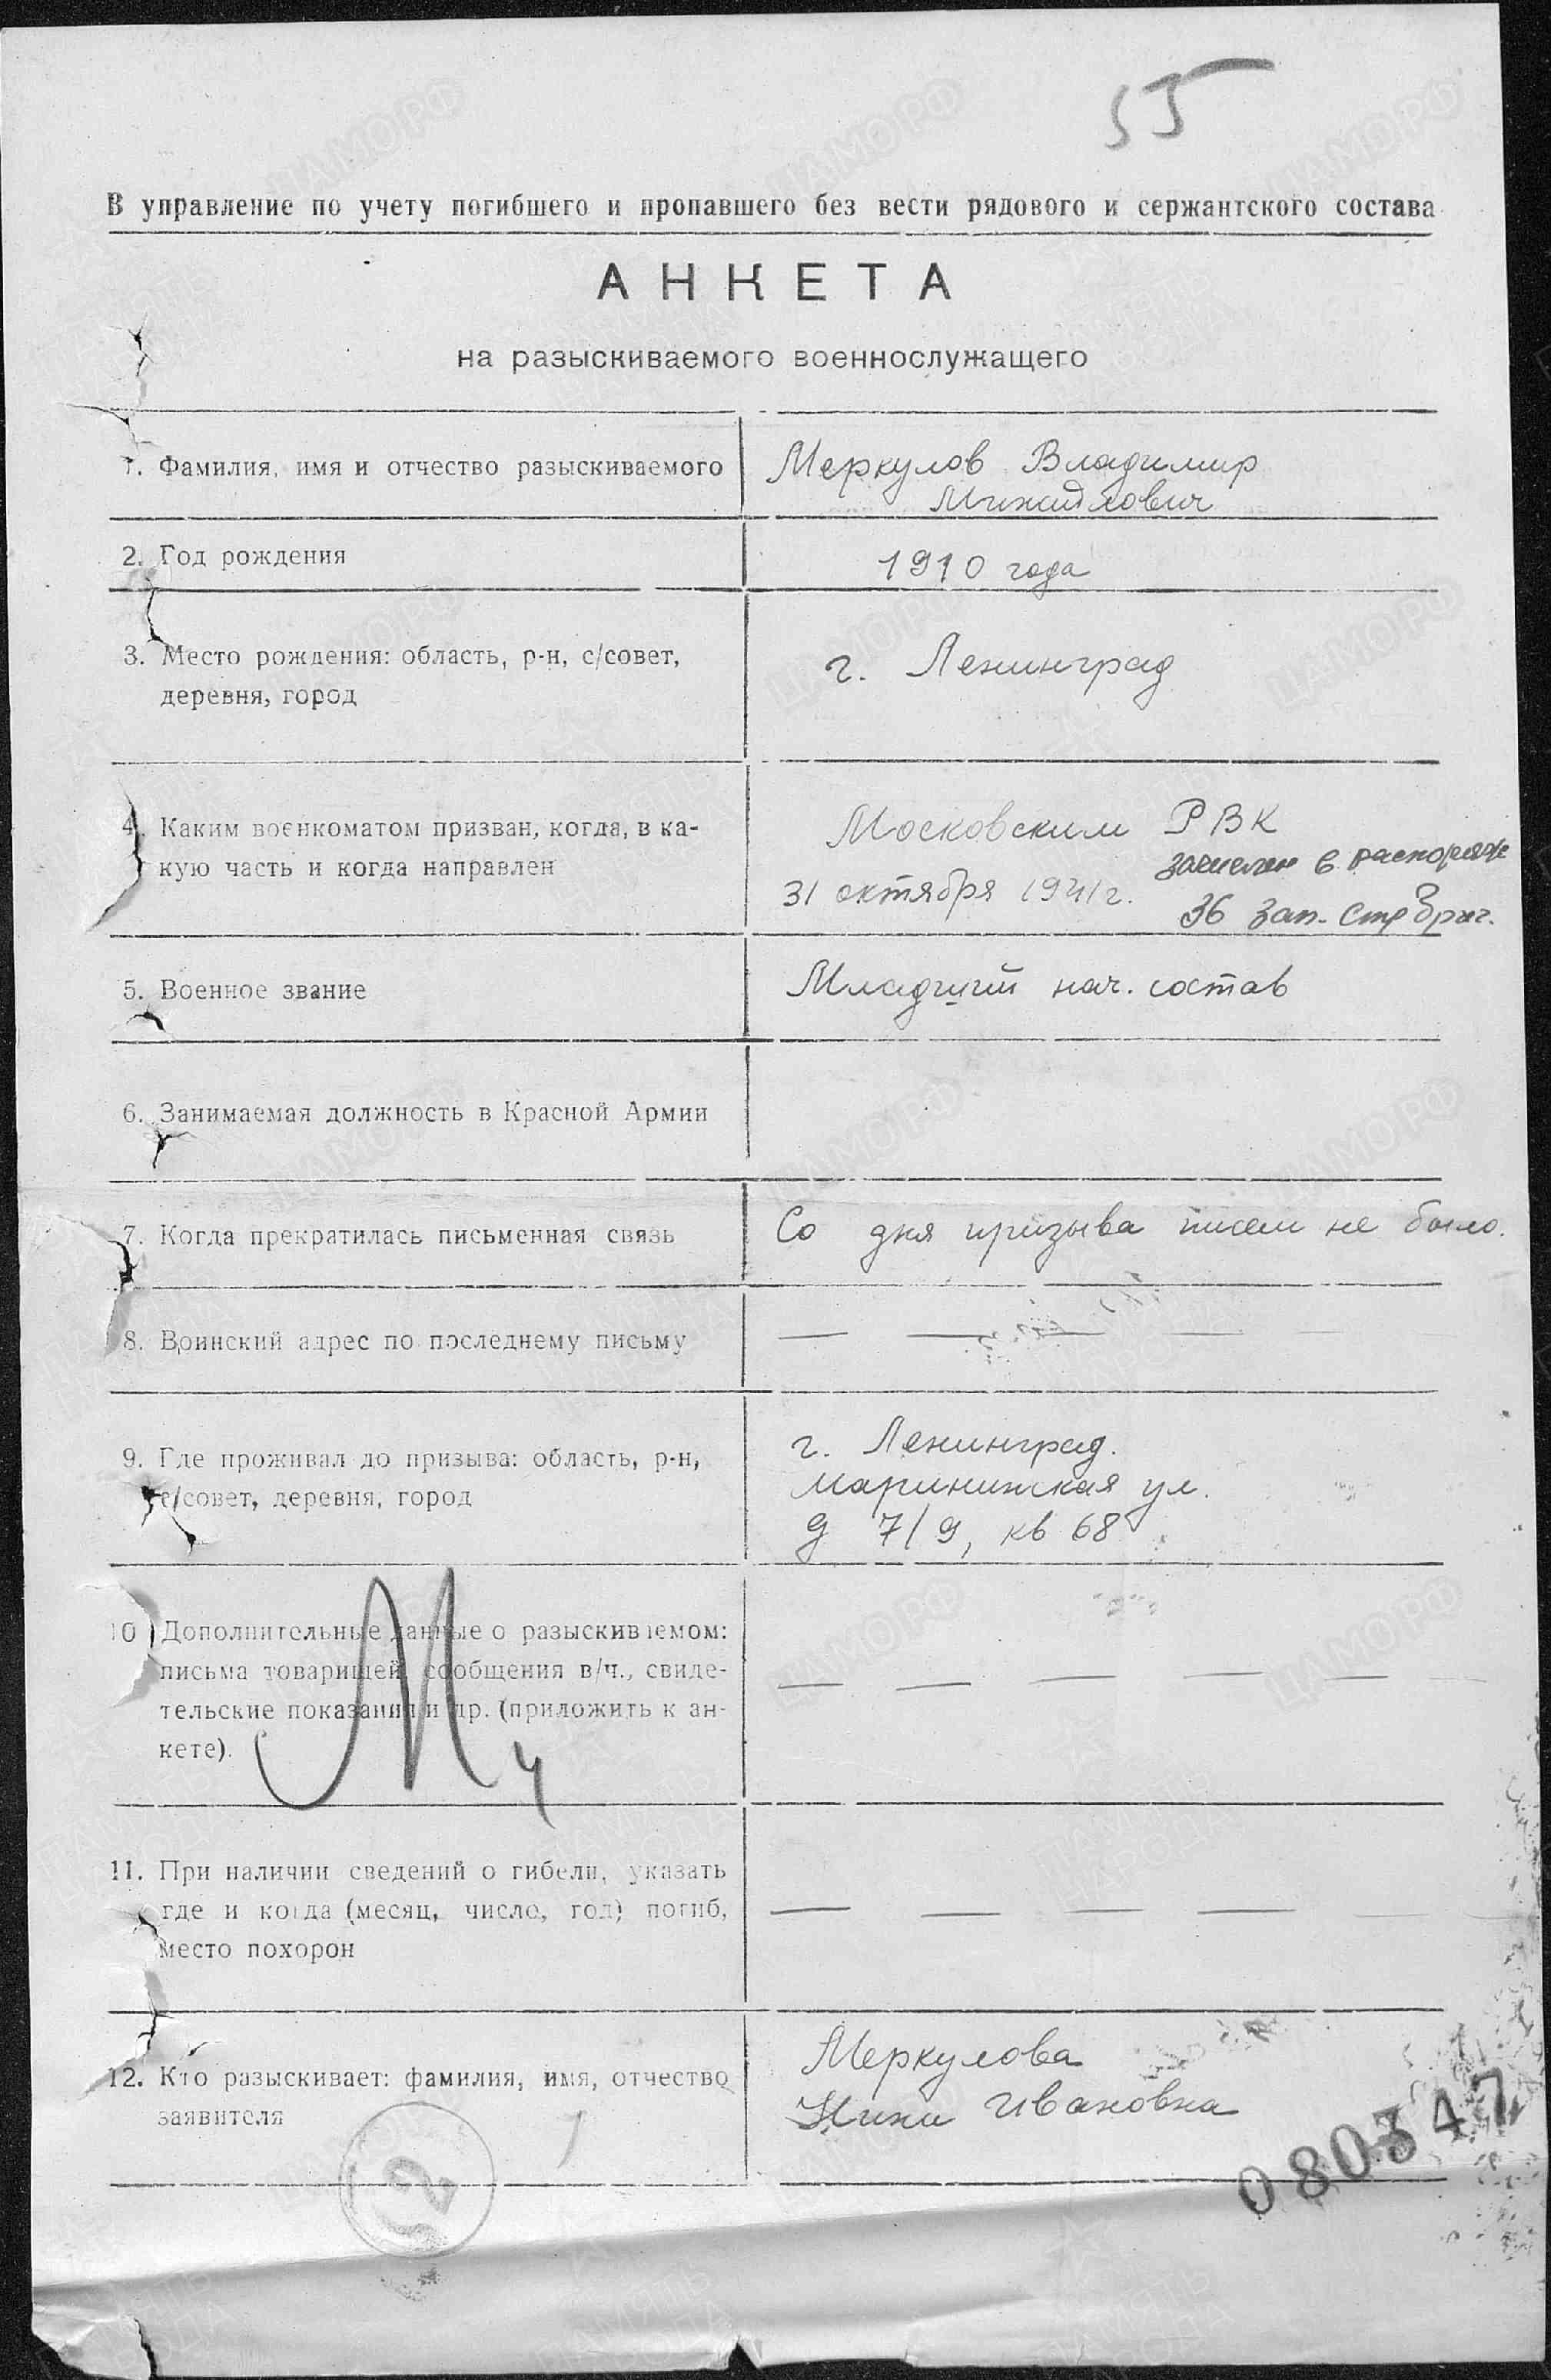 55
В управление по учету погибшего и пропавшего без вести рядового и сержантского состава
АНКЕТА
на разыскиваемого военнослужащего
1. Фамилия, имя и отчество разыскиваемого
Меркулов Владимир
Михайлович
2. Год рождения
1910 года
3. Место рождения: область, р-н, с/совет,
деревня, город
г. Ленинград
4. Каким военкоматом призван, когда, в ка-
кую часть и когда направлен
Московским РВК
31 октября 1941 г.
зачислен в распоряж
36 зап. стр бриг.
5. Военное звание
Младший нач. состав
6. Занимаемая должность в Красной Армии
7. Когда прекратилась письменная связь
Со дня призыва писем не было.
8. Воинский адрес по последнему письму
— — — — —
9. Где проживал до призыва: область, р-н,
с/совет, деревня, город
г. Ленинград.
ул.
д 7/9, кв 68
10 Дополнительные данные о разыскиваемом:
письма товарищей, сообщения в/ч., свиде-
тельские показания и др. (приложить к ан-
кете).
— — — — —
М ч
11. При наличии сведений о гибели, указать
где и когда (месяц, число, год) погиб,
место похорон
— — — — —
12. Кто разыскивает: фамилия, имя, отчество
заявителя
Меркулова
Нина Ивановна
080347
2
ЦАМО РФ
ПАМЯТЬ НАРОДА